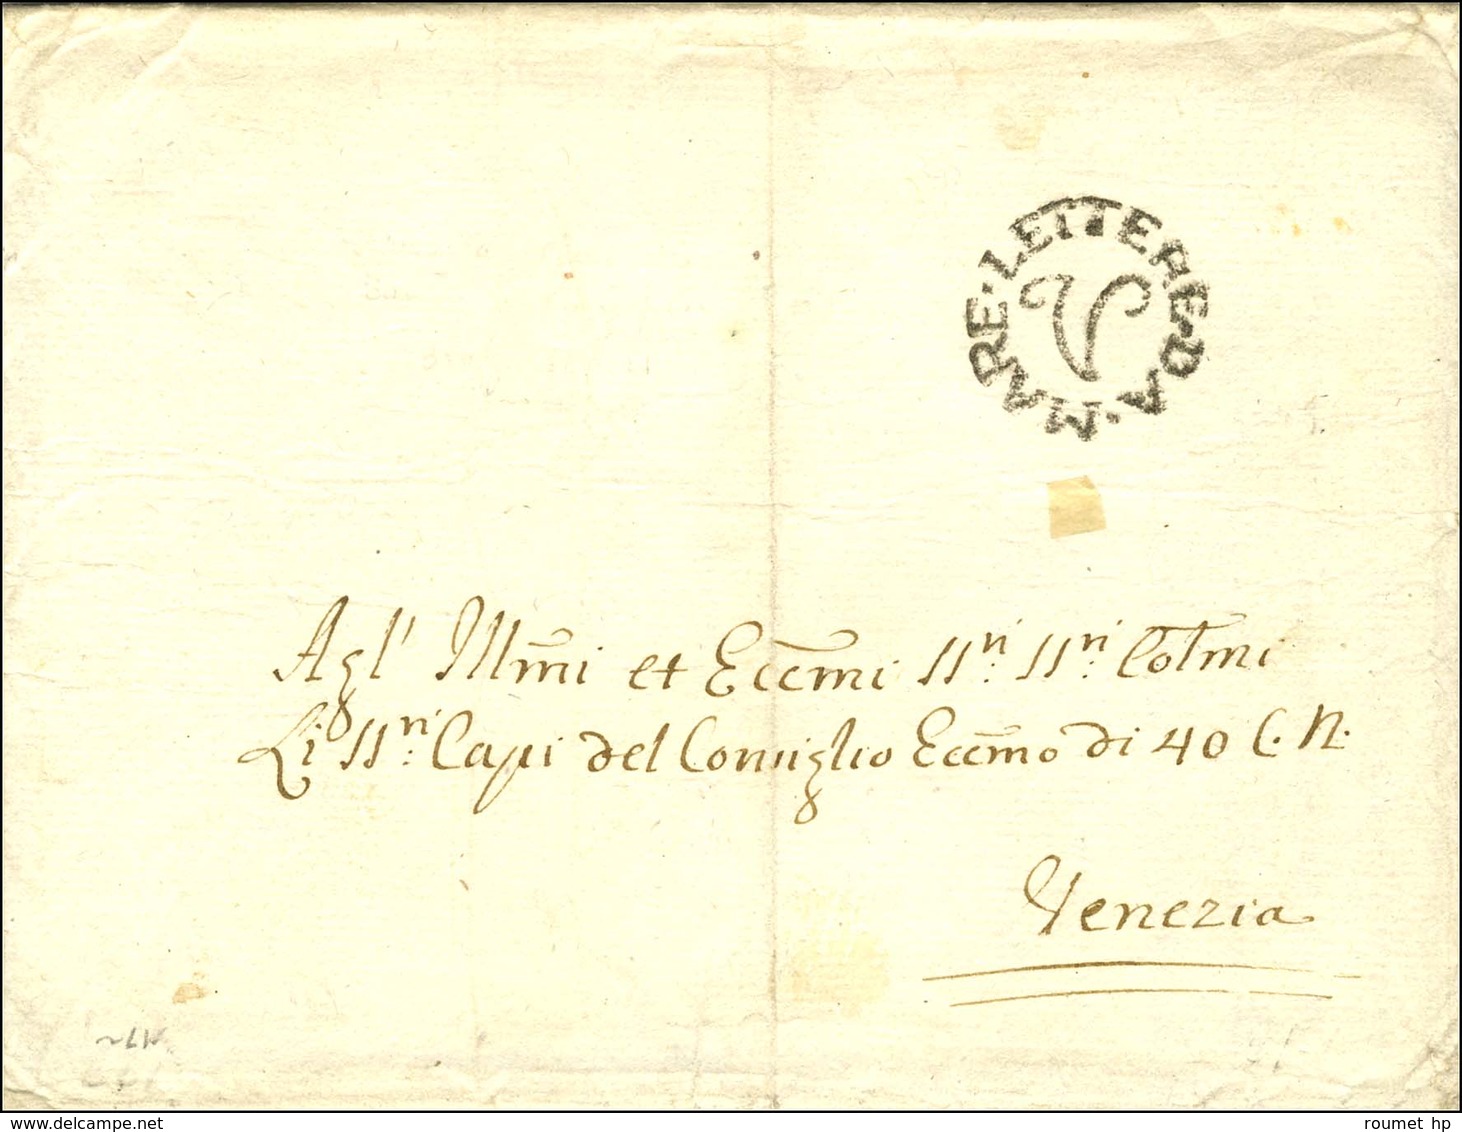 LETTERE · DA · MARE ·
V
Agl' Illm̅i et Ecc̅mi SSri. SSri. Colmi
Li SSri. Capi del Consiglio Ecc̅mo di 40 C. N.
Venezia
delcampe.net
roumet hp